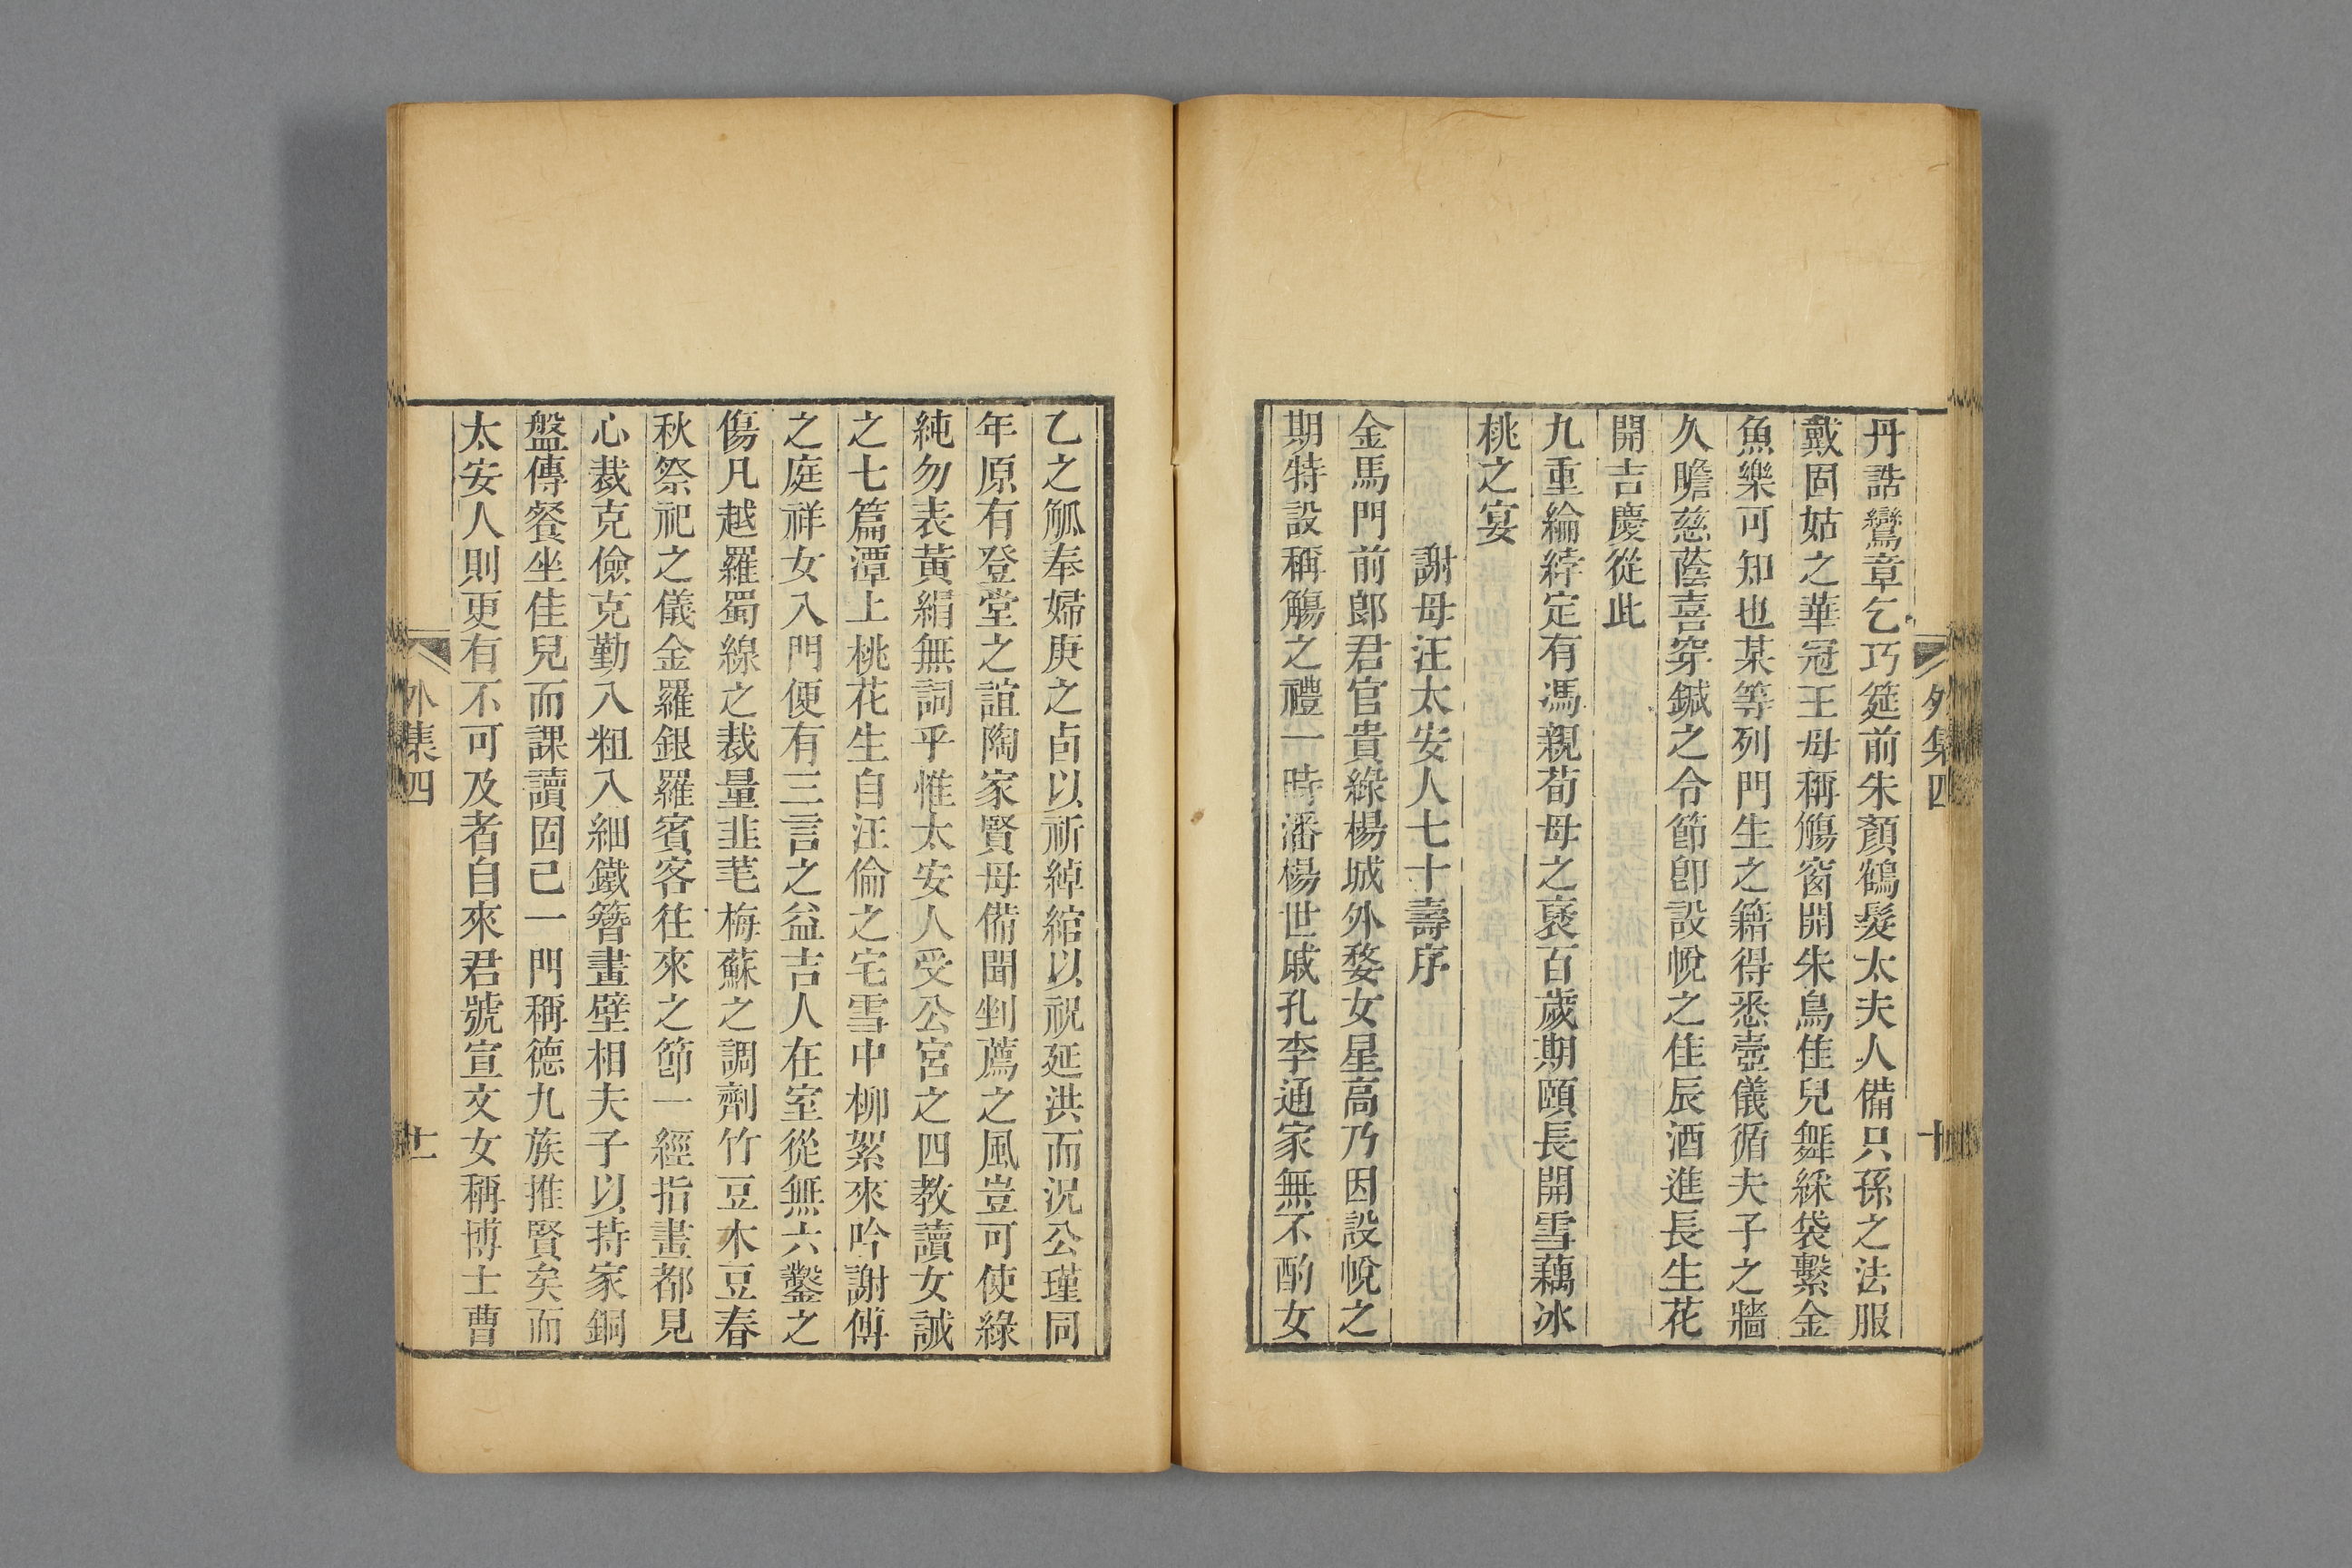 外集四
十
丹誥鸞章乞巧筵前朱顏鶴髮太夫人備只孫之法服
戴固姑之華冠王母稱觴窗開朱鳥佳兒舞綵袋繫金
魚樂可知也某等列門生之籍得悉壼儀循夫子之牆
久瞻慈蔭喜穿鍼之令節卽設帨之佳辰酒進長生花
開吉慶從此
九重綸綍定有馮親荀母之褒百歲期頤長開雪藕冰
桃之宴
謝母汪太安人七十壽序
金馬門前郎君官貴綠楊城外婺女星高乃因設帨之
期特設稱觴之禮一時潘楊世戚孔李通家無不酌女
乙之觚奉婦庚之卣以祈綽綰以祝延洪而況公瑾同
年原有登堂之誼陶家賢母備聞剉薦之風豈可使綠
純勿表黃絹無詞乎惟太安人受公宮之四教讀女誡
之七篇潭上桃花生自汪倫之宅雪中柳絮來吟謝傅
之庭祥女入門便有三言之益吉人在室從無六鑿之
傷凡越羅蜀線之裁量韭芼梅蘇之調劑竹豆木豆春
秋祭祀之儀金羅銀羅賓客往來之節一經指畫都見
心裁克儉克勤入粗入細鐵簪畫壁相夫子以持家銅
盤傳餐坐佳兒而課讀固已一門稱德九族推賢矣而
太安人則更有不可及者自來君號宣文女稱博士曹
外集四
十一